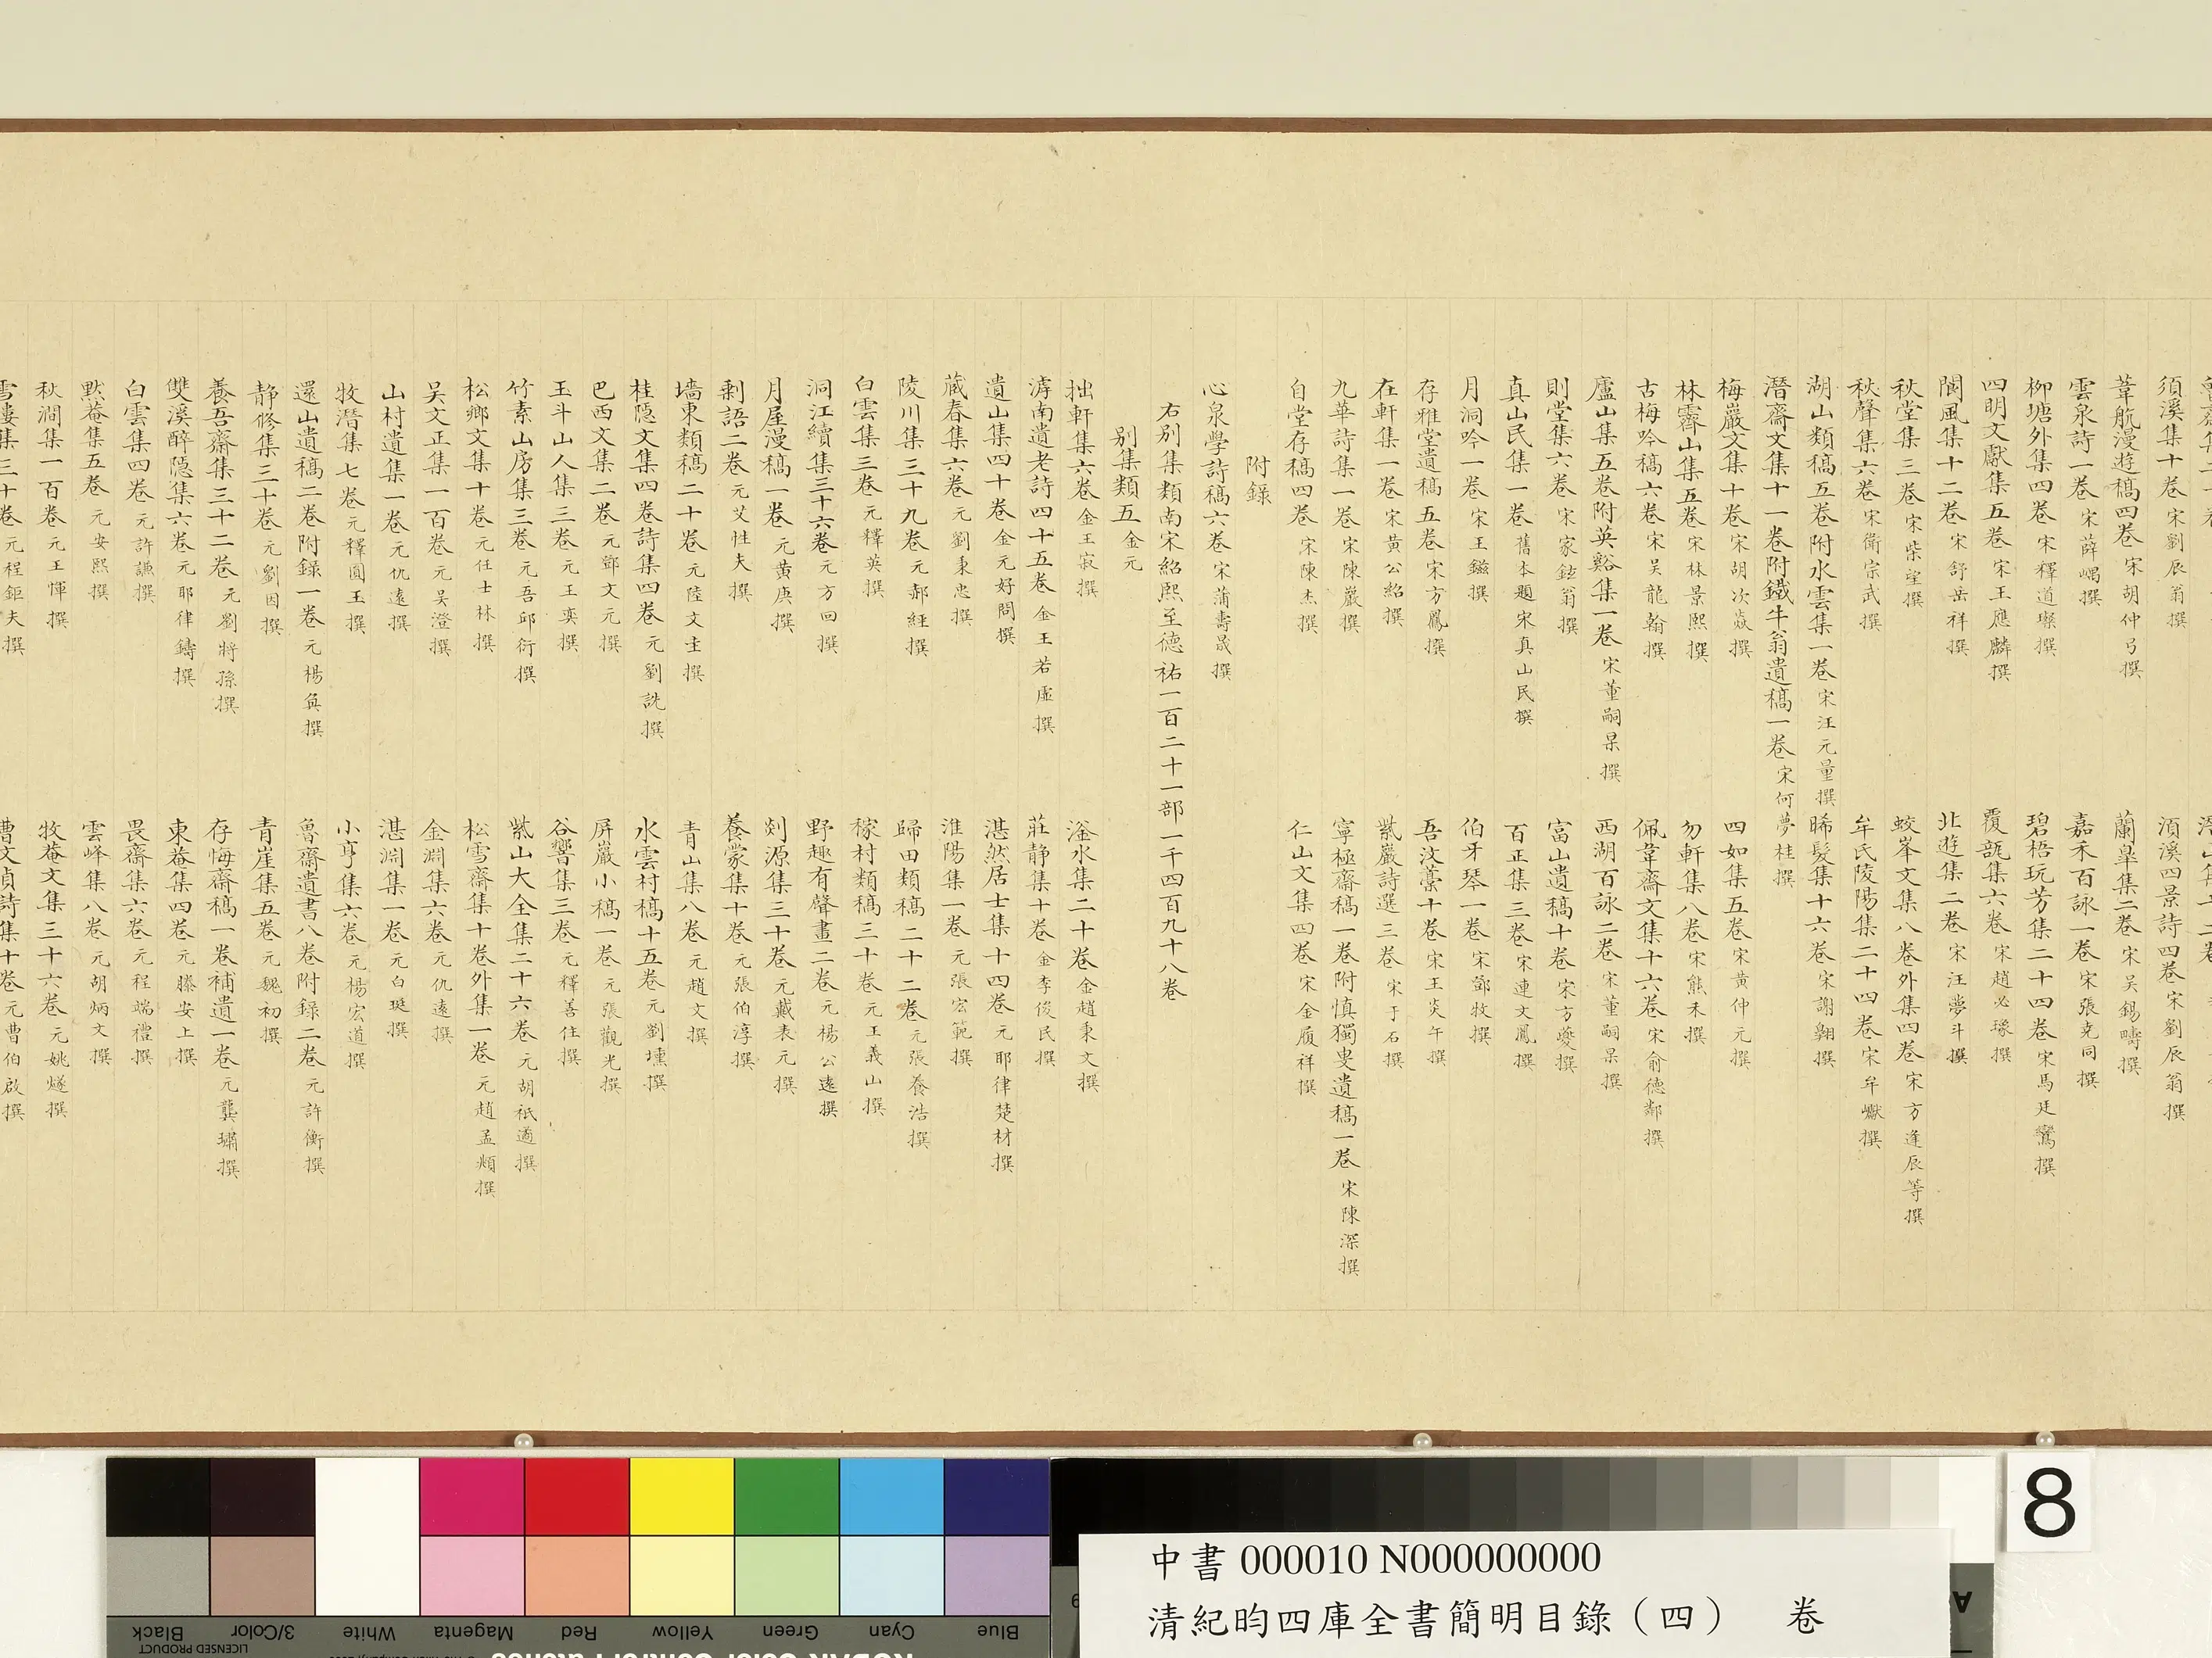 須溪集十卷宋劉辰翁撰 須溪四景詩四卷宋劉辰翁撰
葦航漫遊稿四卷宋胡仲弓撰 蘭皐集二卷宋吳錫疇撰
雲泉詩一卷宋薛嵎撰 嘉禾百詠一卷宋張堯同撰
柳塘外集四卷宋釋道璨撰 碧梧玩芳集二十四卷宋馬廷鸞撰
四明文獻集五卷宋王應麟撰 覆瓿集六卷宋趙必𤩪撰
閬風集十二卷宋舒岳祥撰 北遊集二卷宋汪夢斗撰
秋堂集三卷宋柴望撰 蛟峯文集八卷外集四卷宋方逢辰等撰
秋聲集六卷宋衛宗武撰 牟氏陵陽集二十四卷宋牟巘撰
湖山類稿五卷附水雲集一卷宋汪元量撰 晞髮集十六卷宋謝翱撰
潛齋文集十一卷附鐵牛翁遺稿一卷宋何夢桂撰
梅巖文集十卷宋胡次焱撰 四如集五卷宋黃仲元撰
林霽山集五卷宋林景熙撰 勿軒集八卷宋熊禾撰
古梅吟稿六卷宋吳龍翰撰 佩韋齋文集十六卷宋俞德鄰撰
廬山集五卷附英谿集一卷宋董嗣杲撰 西湖百詠二卷宋董嗣杲撰
則堂集六卷宋家鉉翁撰 富山遺稿十卷宋方夔撰
真山民集一卷舊本題宋真山民撰 百正集三卷宋連文鳳撰
月洞吟一卷宋王鎡撰 伯牙琴一卷宋鄧牧撰
存雅堂遺稿五卷宋方鳳撰 吾汶藁十卷宋王炎午撰
在軒集一卷宋黃公紹撰 紫巖詩選三卷宋于石撰
九華詩集一卷宋陳巖撰 寧極齋稿一卷附慎獨叟遺稿一卷宋陳深撰
自堂存稿四卷宋陳杰撰 仁山文集四卷宋金履祥撰
附錄
心泉學詩稿六卷宋蒲壽宬撰
右別集類南宋紹熙至德祐一百二十一部一千四百九十八卷
別集類五金元
拙軒集六卷金王寂撰 滏水集二十卷金趙秉文撰
滹南遺老詩四十五卷金王若虛撰 莊靜集十卷金李俊民撰
遺山集四十卷金元好問撰 湛然居士集十四卷元耶律楚材撰
藏春集六卷元劉秉忠撰 淮陽集一卷元張宏範撰
陵川集三十九卷元郝經撰 歸田類稿二十二卷元張養浩撰
白雲集三卷元釋英撰 稼村類稿三十卷元王義山撰
洞江續集三十六卷元方回撰 野趣有聲畫二卷元楊公遠撰
月屋漫稿一卷元黃庚撰 剡源集三十卷元戴表元撰
剩語二卷元艾性夫撰 養蒙集十卷元張伯淳撰
墻東類稿二十卷元陸文圭撰 青山集八卷元趙文撰
桂隱文集四卷詩集四卷元劉詵撰 水雲村稿十五卷元劉壎撰
巴西文集二卷元鄧文元撰 屏巖小稿一卷元張觀光撰
玉斗山人集三卷元王奕撰 谷響集三卷元釋善住撰
竹素山房集三卷元吾邱衍撰 紫山大全集二十六卷元胡祗遹撰
松鄉文集十卷元任士林撰 松雪齋集十卷外集一卷元趙孟頫撰
吳文正集一百卷元吳澄撰 金淵集六卷元仇遠撰
山村遺集一卷元仇遠撰 湛淵集一卷元白珽撰
牧潛集七卷元釋圓至撰 小亨集六卷元楊宏道撰
還山遺稿二卷附錄一卷元楊奐撰 魯齋遺書八卷附錄二卷元許衡撰
靜修集三十卷元劉因撰 青崖集五卷元魏初撰
養吾齋集三十二卷元劉將孫撰 存悔齋稿一卷補遺一卷元龔璛撰
雙溪醉隱集六卷元耶律鑄撰 東菴集四卷元滕安上撰
白雲集四卷元許謙撰 畏齋集六卷元程端禮撰
默菴集五卷元安熙撰 雲峰集八卷元胡炳文撰
秋澗集一百卷元王惲撰 牧菴文集三十六卷元姚燧撰
雪樓集三十卷元程鉅夫撰 曹文貞詩集十卷元曹伯啟撰
8
中書 000010 N000000000
清紀昀四庫全書簡明目錄（四） 卷
Blue Cyan Green Yellow Red Magenta White 3/Color Black
LICENSED PRODUCT